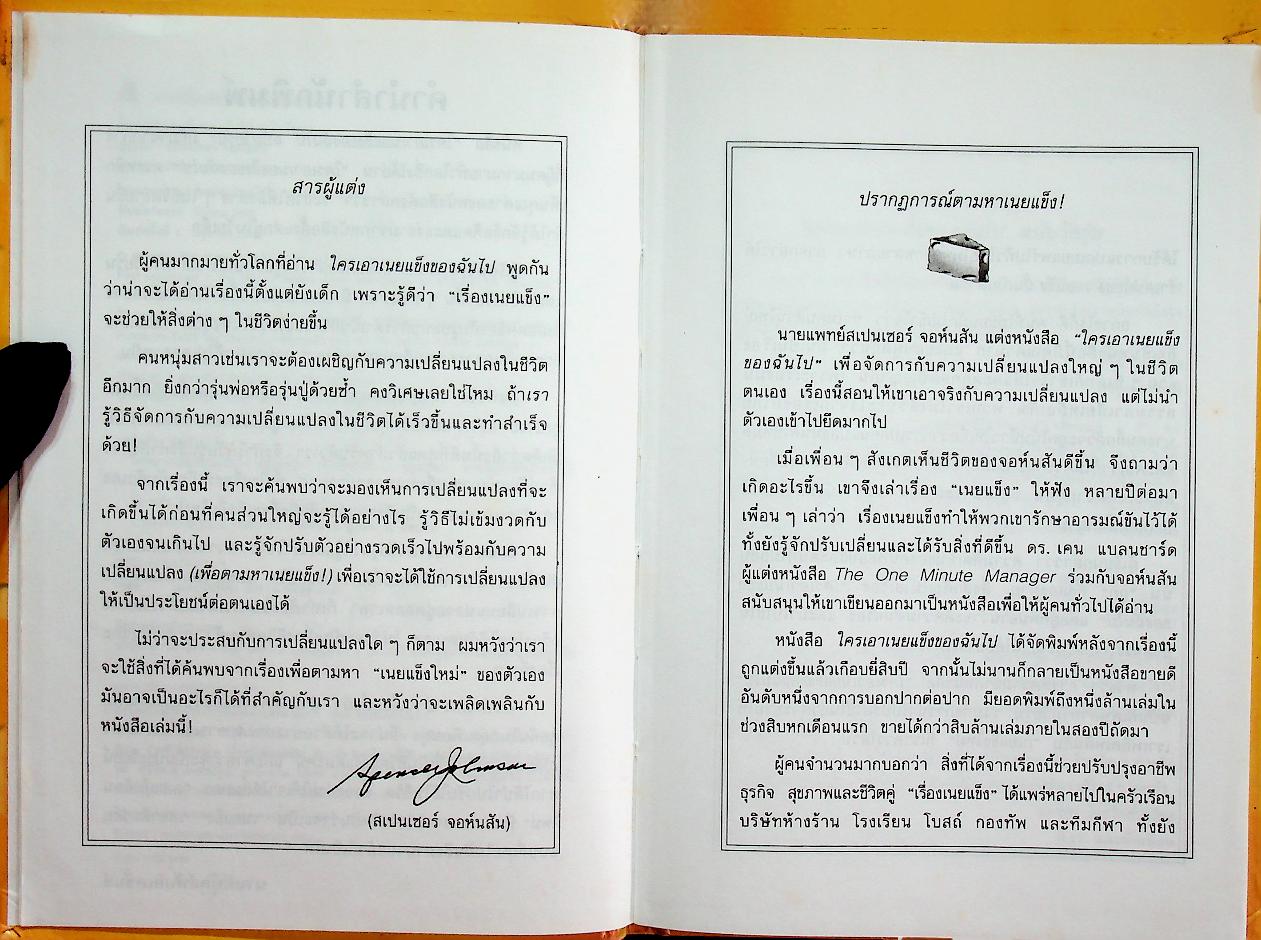 สารผู้แต่ง
ผู้คนมากมายทั่วโลกที่อ่าน ใครเอาเนยแข็งของฉันไป พูดกัน
ว่าน่าจะได้อ่านเรื่องนี้ตั้งแต่ยังเด็ก เพราะรู้ดีว่า “เรื่องเนยแข็ง”
จะช่วยให้สิ่งต่าง ๆ ในชีวิตง่ายขึ้น
คนหนุ่มสาวเช่นเราจะต้องเผชิญกับความเปลี่ยนแปลงในชีวิต
อีกมาก ยิ่งกว่ารุ่นพ่อหรือรุ่นปู่ด้วยซ้ำ คงวิเศษเลยใช่ไหม ถ้าเรา
รู้วิธีจัดการกับความเปลี่ยนแปลงในชีวิตได้เร็วขึ้นและทำสำเร็จ
ด้วย!
จากเรื่องนี้ เราจะค้นพบว่าจะมองเห็นการเปลี่ยนแปลงที่จะ
เกิดขึ้นได้ก่อนที่คนส่วนใหญ่จะรู้ได้อย่างไร รู้วิธีไม่เข้มงวดกับ
ตัวเองจนเกินไป และรู้จักปรับตัวอย่างรวดเร็วไปพร้อมกับความ
เปลี่ยนแปลง (เพื่อตามหาเนยแข็ง!) เพื่อเราจะได้ใช้การเปลี่ยนแปลง
ให้เป็นประโยชน์ต่อตนเองได้
ไม่ว่าจะประสบกับการเปลี่ยนแปลงใด ๆ ก็ตาม ผมหวังว่าเรา
จะใช้สิ่งที่ได้ค้นพบจากเรื่องเพื่อตามหา “เนยแข็งใหม่” ของตัวเอง
มันอาจเป็นอะไรก็ได้ที่สำคัญกับเรา และหวังว่าจะเพลิดเพลินกับ
หนังสือเล่มนี้!
Spencer Johnson
(สเปนเซอร์ จอห์นสัน)
ปรากฏการณ์ตามหาเนยแข็ง!
นายแพทย์สเปนเซอร์ จอห์นสัน แต่งหนังสือ “ใครเอาเนยแข็ง
ของฉันไป” เพื่อจัดการกับความเปลี่ยนแปลงใหญ่ ๆ ในชีวิต
ตนเอง เรื่องนี้สอนให้เขาเอาจริงกับความเปลี่ยนแปลง แต่ไม่นำ
ตัวเองเข้าไปยึดมากไป
เมื่อเพื่อน ๆ สังเกตเห็นชีวิตของจอห์นสันดีขึ้น จึงถามว่า
เกิดอะไรขึ้น เขาจึงเล่าเรื่อง “เนยแข็ง” ให้ฟัง หลายปีต่อมา
เพื่อน ๆ เล่าว่า เรื่องเนยแข็งทำให้พวกเขารักษาอารมณ์ขันไว้ได้
ทั้งยังรู้จักปรับเปลี่ยนและได้รับสิ่งที่ดีขึ้น ดร. เคน แบลนชาร์ด
ผู้แต่งหนังสือ The One Minute Manager ร่วมกับจอห์นสัน
สนับสนุนให้เขาเขียนออกมาเป็นหนังสือเพื่อให้ผู้คนทั่วไปได้อ่าน
หนังสือ ใครเอาเนยแข็งของฉันไป ได้จัดพิมพ์หลังจากเรื่องนี้
ถูกแต่งขึ้นแล้วเกือบยี่สิบปี จากนั้นไม่นานก็กลายเป็นหนังสือขายดี
อันดับหนึ่งจากการบอกปากต่อปาก มียอดพิมพ์ถึงหนึ่งล้านเล่มใน
ช่วงสิบหกเดือนแรก ขายได้กว่าสิบล้านเล่มภายในสองปีถัดมา
ผู้คนจำนวนมากบอกว่า สิ่งที่ได้จากเรื่องนี้ช่วยปรับปรุงอาชีพ
ธุรกิจ สุขภาพและชีวิตคู่ “เรื่องเนยแข็ง” ได้แพร่หลายไปในครัวเรือน
บริษัทห้างร้าน โรงเรียน โบสถ์ กองทัพ และทีมกีฬา ทั้งยัง